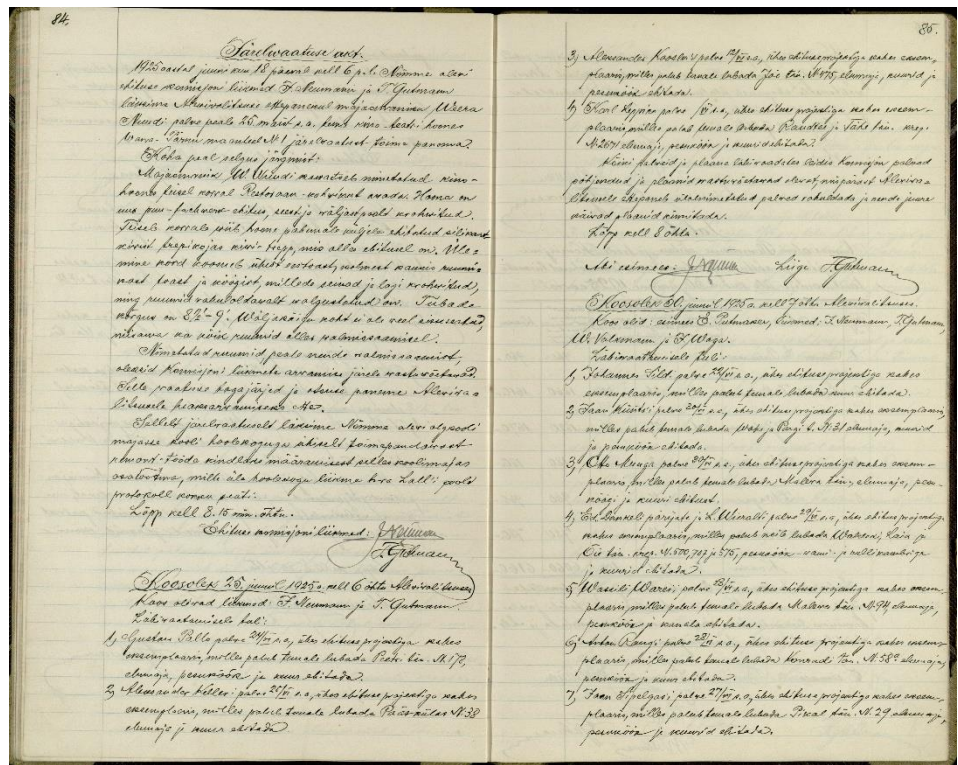 84.
Järelwaatuse akt.
1925 aastal juuni kuu 18 päewal kell 6 p.l. Nõmme alewi
ehituse komisjoni liikmed J. Neumann ja T. Gutmann
läksime Alewiwalitsuse ettepanekul majaomaniku Weera
Wundi palwe peale 25 s.a. tema kino-teatri hoones
Wana-Pärnu maanteel № 1 järelwaatust toime panema.
Koha peal selgus järgmist:
Majaomanik W. Wundi kawatseb nimetatud kino-
hoone teisel korral Restoraan-kohwikut awada. Hoone on
uus puu-fachwerk-ehitus, seest ja wäljastpoolt krohwitud.
Teisele korrale wiib hoone pahemale küljele ehitatud silikaat
kiwist trepikojas kiwi-trepp, mis alles ehitusel on. Üle-
mine kord koosneb ühest eestoast, kolmest ruumi-
kast toast ja köögist, millede seinad ja lagi krohwitud,
ning ruumid rahuloldawalt walgustatud on. Tubade
kõrgus on 8½'-9'. Wäljakäigu koht ei ole weel sisseseatud,
niisama ka kõik ruumid alles walmissaamisel.
Nimetatud ruumid, peale nende walmissaamist,
oleksid Komisjoni liikmete arwamise järele wastuwõetawad.
Selle waatuse tagajärjed ja otsuse paneme Alewiwa-
litsusele heaksarwamiseks ette.
Sellelt järelwaatuselt läksime Nõmme alewi algkooli
majasse kooli hoolekoguga ühiselt toimepandawast
remont-tööde kindlaks määramisest selles koolimajas
osawõtma, mille üle hoolekogu liikme hra Lall'i poolt
protokoll kokku seati.
Lõpp kell 8.15 min. õhtu.
Ehituse komisjoni liikmed: J. Neumann
T. Gutmann
Koosolek 25. juunil 1925 a. kell 6 õhtu Alewiwalitsuses
Koos olewad liikmed J. Neumann ja T. Gutmann
Läbiwaatamisele tuli:
1) Gustaw Palla palwe 24/VI s.a., ühes ehituse projektiga kahes
eksemplaaris, milles palub temale lubada tän. № 170,
elumaja, pesuköök ja kuur ehitada.
2) Aleksander Kelleri palwe 25/VI s.a., ühes ehituse projektiga kahes
eksemplaris, milles palub temale lubada Pääsküla № 38
elumaja ja kuur ehitada
85.
3) Aleksander Koosler'i palwe 12/VI s.a., ühes ehituse projektiga kahes eksem-
plaaris, milles palub temale lubada Jõe tän. № 475 elumaja, kuurid ja
pesuköök ehitada.
4) Karl palwe s.a., ühes ehituse projektiga kahes eksem-
plaaris, milles palub temale lubada Raudtee ja Tähe tän. krop.
№ 267 elumaja, pesuköök ja kuurid ehitada.
Keiki palweid ja plaane läbiwaadates leidis Komisjon palwed
põhjendud ja plaanid wastuwõetawad olewat, mispärast Alewiwa-
litsusele ettepaneb ülalnimetatud palwed rahuldada ja nende juure
käiwad plaanid kinnitada.
Lõpp kell 8 õhtu.
Abi esimees: J. Neumann Liige T. Gutmann
Koosolek 30. juunil 1925 a. kell 7 õhtu Alewiwalitsuses.
Koos olid: esimees E. Putmaker, liikmed: J. Neumann, T. Gutmann,
W. Volkmann ja J. Waga.
Läbiwaatamisele tuli:
1) Johannes Sild palwe 22/VI s.a., ühes ehituse projektiga kahes
eksemplaaris, milles palub temale lubada kuur ehitada.
2) Jaan palwe 20/VI s.a., ühes ehituse projektiga kahes eksemplaaris,
milles palub temale lubada Wabe ja Pargi t. № 31 elumaja, kuurid
ja pesuköök ehitada.
3) Otto Menga palwe 30/VI s.a., ühes ehituse projektiga kahes eksem-
plaaris, milles palub temale lubada Malewa tän. elumaja, pesu-
köögi ja kuuri ehitust.
4) Ed. pärijate ja L. palwe 29/VI s.a., ühes ehituse projektiga
kahes eksemplaaris, milles palub neile lubada Laia ja
Õie tän. krop. № 500, 707 ja 575, pesuköök
ja kuurid ehitada.
5) Wassili Warei palwe 23/VI s.a., ühes ehituse projektiga kahes eksem-
plaaris, milles palub temale lubada Malewa tän. № 94, elumaja,
pesuköök ja kanala ehitada.
6) Anton Raugi palwe 22/VI s.a., ühes ehituse projektiga kahes eksem-
plaaris, milles palub temale lubada Konradi tän. № 58a elumaja,
pesuköök ja kuur ehitada.
7) Jaan Sipelgasi palwe 27/VI s.a., ühes ehituse projektiga kahes eksem-
plaaris, milles palub temale lubada Piwal tän. № 29 elumaja,
pesuköök ja kuurid ehitada.